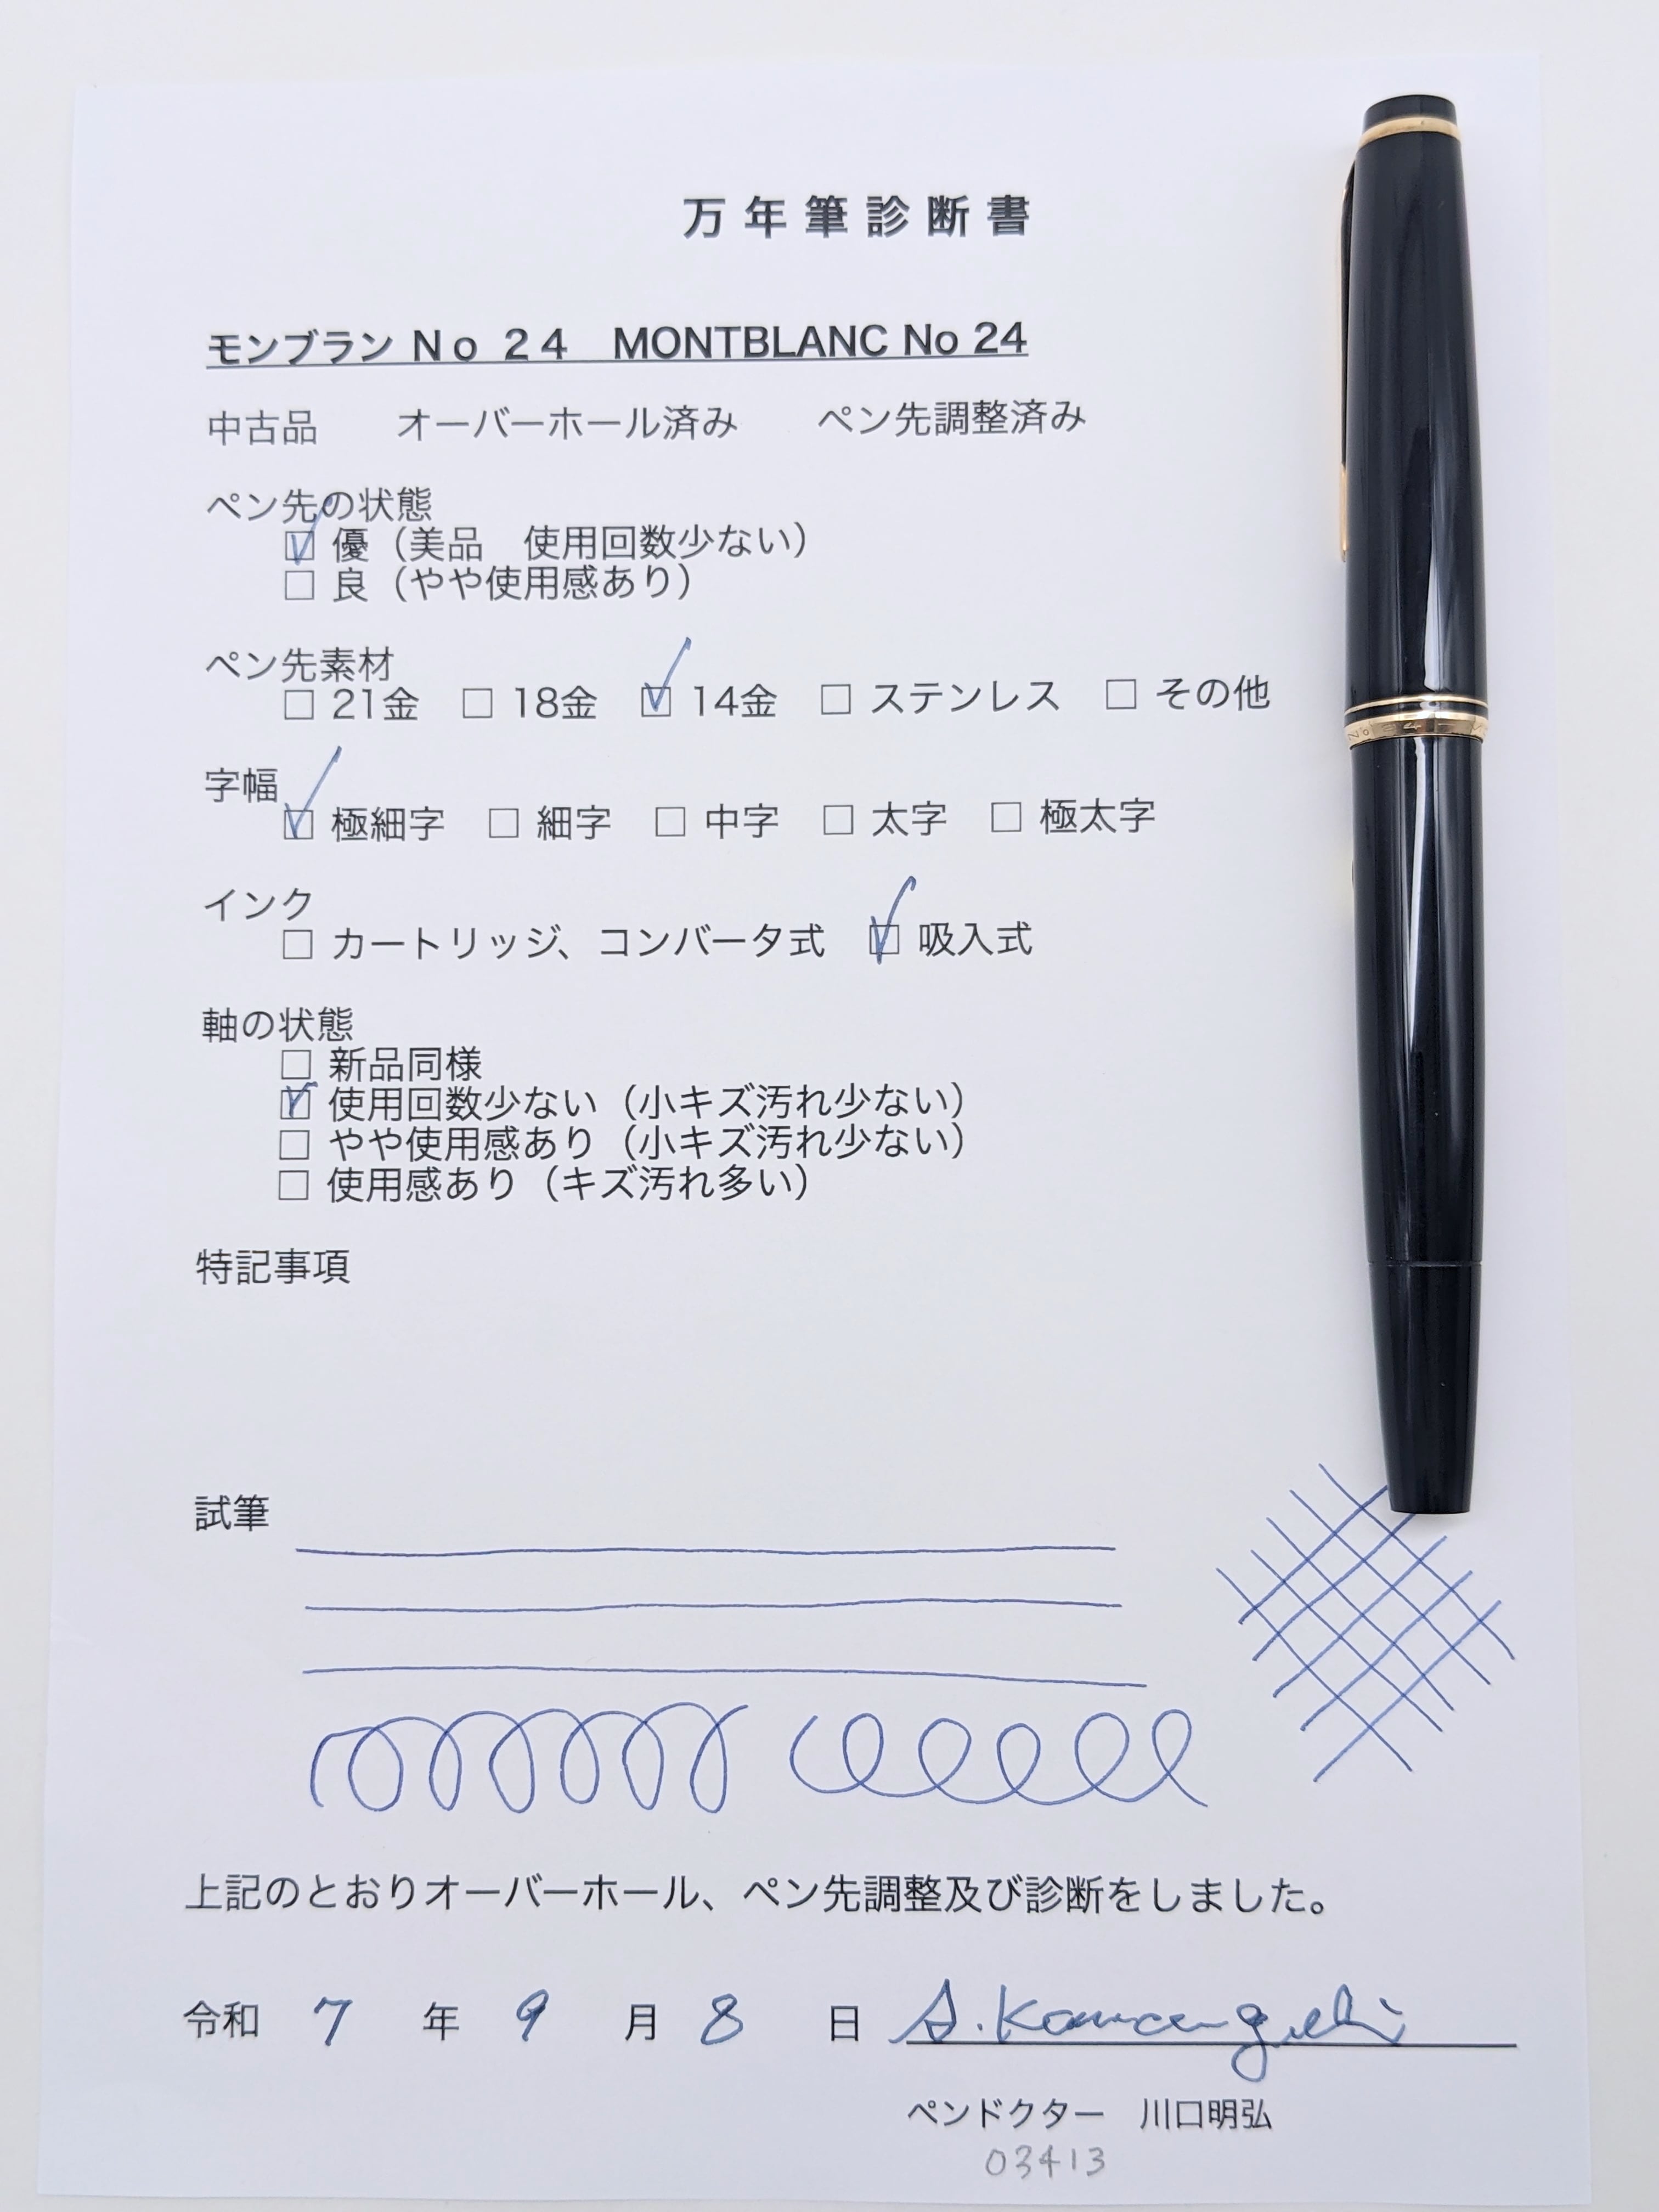 万年筆診断書
モンブラン No 24 MONTBLANC No 24
中古品 オーバーホール済み ペン先調整済み
ペン先の状態
☑ 優（美品 使用回数少ない）
□ 良（やや使用感あり）
ペン先素材
□ 21金 □ 18金 ☑ 14金 □ ステンレス □ その他
字幅
☑ 極細字 □ 細字 □ 中字 □ 太字 □ 極太字
インク
□ カートリッジ、コンバータ式 ☑ 吸入式
軸の状態
□ 新品同様
☑ 使用回数少ない（小キズ汚れ少ない）
□ やや使用感あり（小キズ汚れ少ない）
□ 使用感あり（キズ汚れ多い）
特記事項
試筆
上記のとおりオーバーホール、ペン先調整及び診断をしました。
令和 7 年 9 月 8 日 A. Kawaguchi
ペンドクター 川口明弘
03413
No 24